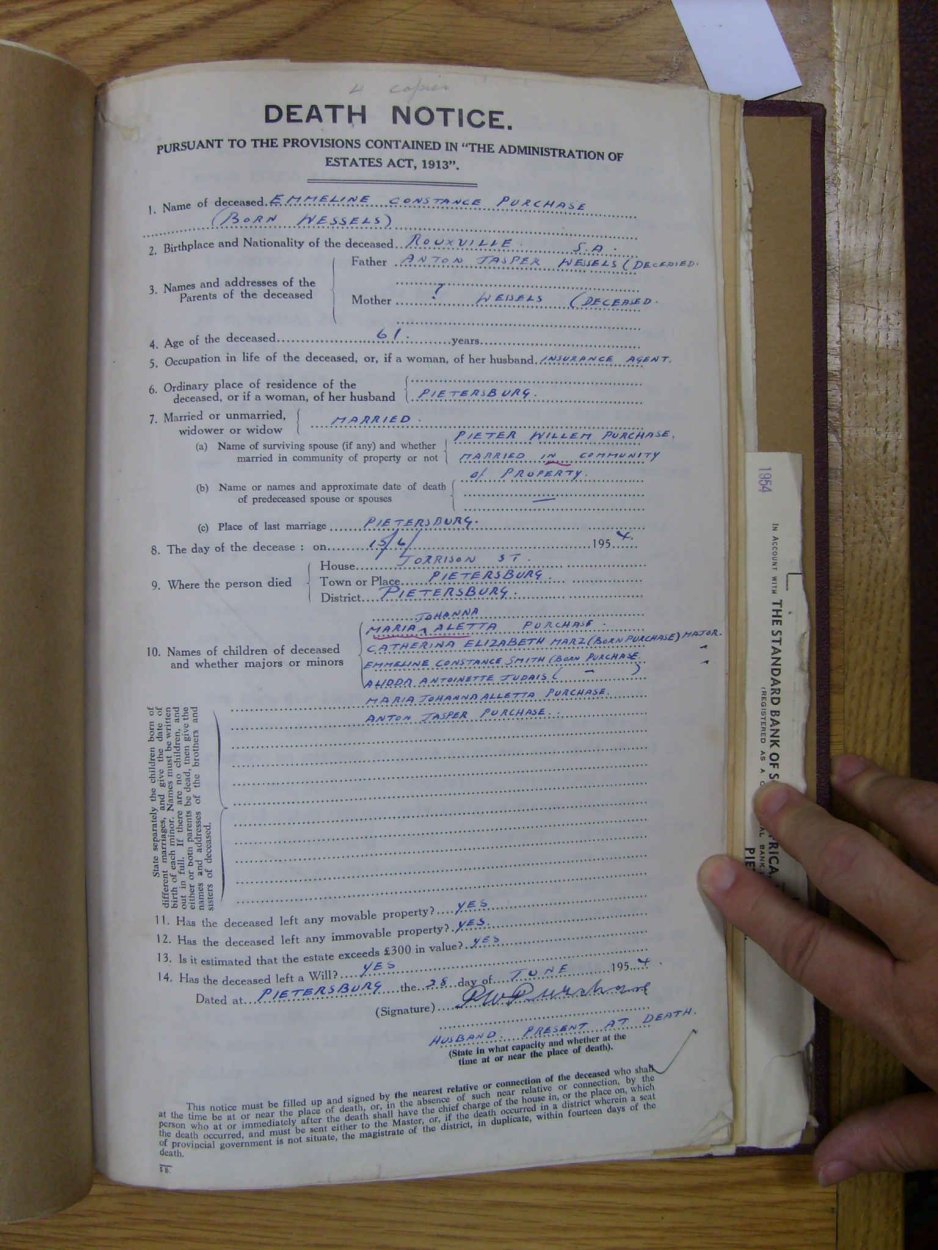 4 copies
DEATH NOTICE.
PURSUANT TO THE PROVISIONS CONTAINED IN "THE ADMINISTRATION OF
ESTATES ACT, 1913".
1. Name of deceased EMMELINE CONSTANCE PURCHASE
(BORN WESSELS)
2. Birthplace and Nationality of the deceased ROUXVILLE. S.A.
3. Names and addresses of the Parents of the deceased
Father ANTON JASPER WESSELS (DECEASED.
Mother ? WESSELS (DECEASED.
4. Age of the deceased 61. years
5. Occupation in life of the deceased, or, if a woman, of her husband INSURANCE AGENT.
6. Ordinary place of residence of the
deceased, or if a woman, of her husband PIETERSBURG.
7. Married or unmarried,
widower or widow MARRIED.
(a) Name of surviving spouse (if any) and whether
married in community of property or not
PIETER WILLEM PURCHASE.
MARRIED IN COMMUNITY
of PROPERTY.
(b) Name or names and approximate date of death
of predeceased spouse or spouses —
(c) Place of last marriage PIETERSBURG.
8. The day of the decease : on 15/6/ 1954.
9. Where the person died
House JORRISON ST.
Town or Place PIETERSBURG.
District PIETERSBURG.
10. Names of children of deceased
and whether majors or minors
JOHANNA
MARIA ALETTA PURCHASE.
CATHERINA ELIZABETH MARZ (BORN PURCHASE) MAJOR.
EMMELINE CONSTANCE SMITH (BORN PURCHASE "
ALIDDA ANTOINETTE JUDAIS ( — ) "
MARIA JOHANNA ALLETTA PURCHASE
ANTON JASPER PURCHASE.
State separately the children born of
different marriages, and give the date of
birth of each minor. Names must be written
out in full. If there are no children, and
either or both parents be dead, then give the
names and addresses of the brothers and
sisters of deceased.
11. Has the deceased left any movable property? YES
12. Has the deceased left any immovable property? YES.
13. Is it estimated that the estate exceeds £300 in value? YES
14. Has the deceased left a Will? YES
Dated at PIETERSBURG the 28 day of JUNE 1954.
(Signature) PWPurchase
HUSBAND. PRESENT AT DEATH.
(State in what capacity and whether at the
time at or near the place of death).
This notice must be filled up and signed by the nearest relative or connection of the deceased who shall
at the time be at or near the place of death, or, in the absence of such near relative or connection, by the
person who at or immediately after the death shall have the chief charge of the house in, or the place on, which
the death occurred, and must be sent either to the Master, or, if the death occurred in a district wherein a seat
of provincial government is not situate, the magistrate of the district, in duplicate, within fourteen days of the
death.
1954
IN ACCOUNT WITH THE STANDARD BANK OF S RICA,
(REGISTERED AS A